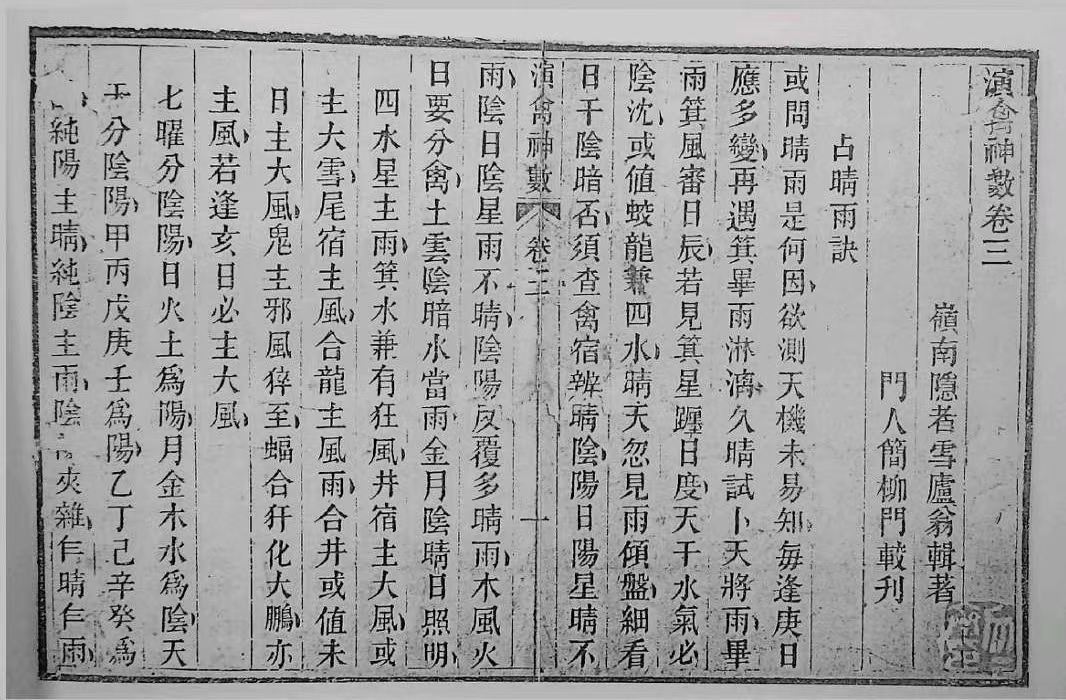 演禽神數卷三
嶺南隱者雪廬翁輯著
門人簡柳門較刋
占晴雨訣
或問晴雨是何因欲測天機未易知每逢庚日
應多變再遇箕畢雨淋漓久晴試卜天將雨畢
雨箕風審日辰若見箕星躔日度天干水氣必
陰沈或值蛟龍兼四水晴天忽見雨傾盤細看
日干陰暗否須查禽宿辨晴陰陽日陽星晴不
演禽神數 卷三 一
雨陰日陰星雨不晴陰陽反覆多晴雨木風火
日要分禽土雲陰暗水當雨金月陰晴日照明
四水星主雨箕水兼有狂風井宿主大風或
主大雪尾宿主風合龍主風雨合井或值未
日主大風鬼主邪風猝至蝠合犴化大鵬亦
主風若逢亥日必主大風
七曜分陰陽日火土爲陽月金木水爲陰天
干分陰陽甲丙戊庚壬爲陽乙丁己辛癸爲
純陽主晴純陰主雨陰夾雜乍晴乍雨